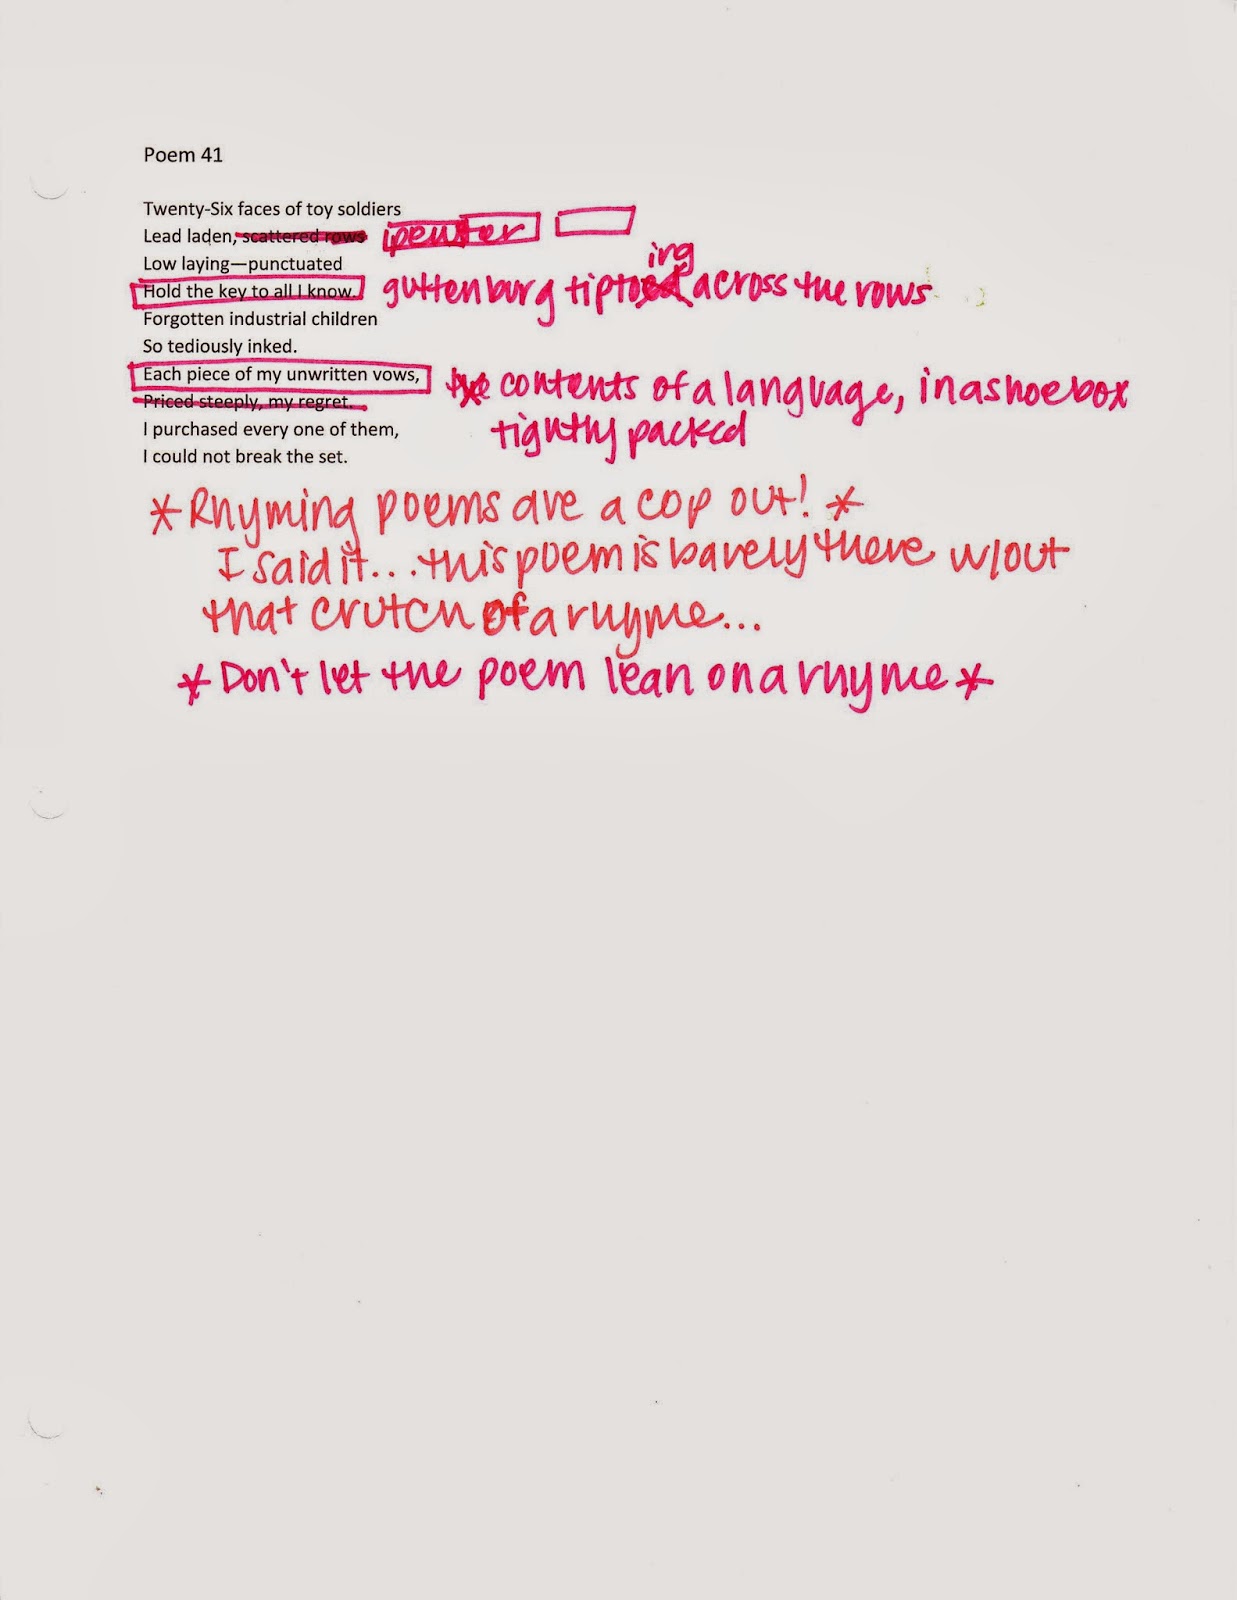 Poem 41
Twenty-Six faces of toy soldiers
Lead laden, scattered rows pewter
Low laying—punctuated
ing
Hold the key to all I know. guttenburg tiptoed across the rows
Forgotten industrial children
So tediously inked.
Each piece of my unwritten vows, the contents of a language, in a shoebox
Priced steeply, my regret. tightly packed
I purchased every one of them,
I could not break the set.
*Rhyming poems are a cop out!*
I said it...this poem is barely there w/out
that crutch of a rhyme...
*Don't let the poem lean on a rhyme*